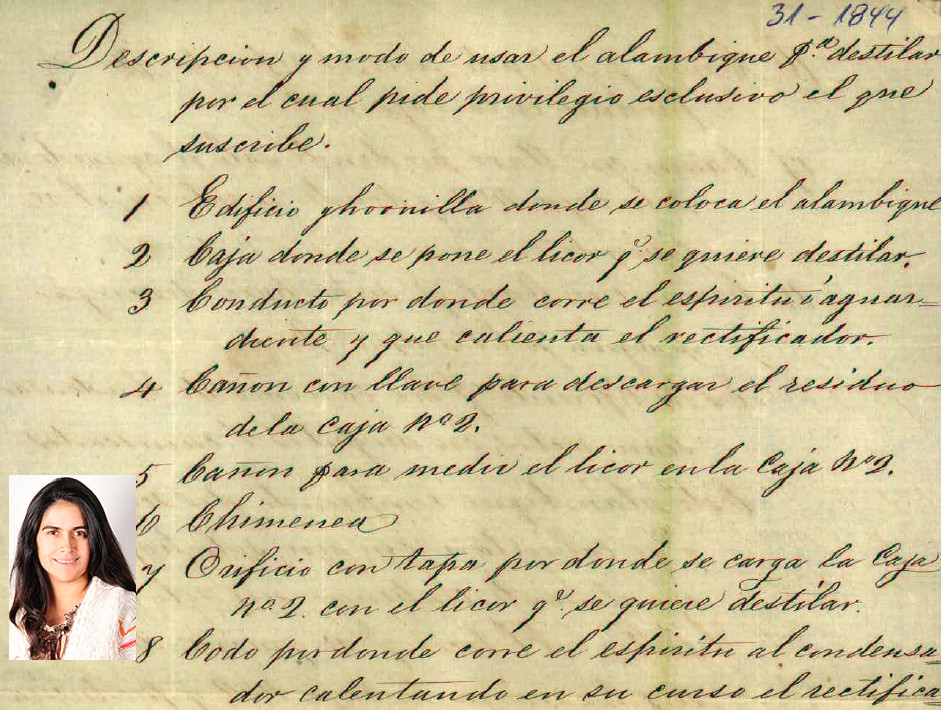 31 - 1844
Descripcion y modo de usar el alambique pª. destilar
por el cual pide privilegio esclusivo el que
suscribe.
1 Edificio y hornilla donde se coloca el alambique
2 Caja donde se pone el licor q^e. se quiere destilar.
3 Conducto por donde corre el espiritu ó aguar-
diente y que calienta el rectificador.
4 Cañon con llave para descargar el residuo
de la Caja Nº 2.
5 Cañon para medir el licor en la Caja Nº 2.
6 Chimenea
7 Orificio con tapa por donde se carga la Caja
nº. 2. con el licor q^e. se quiere destilar.
8 Codo por donde corre el espiritu al condensa-
dor calentando en su curso el rectifica